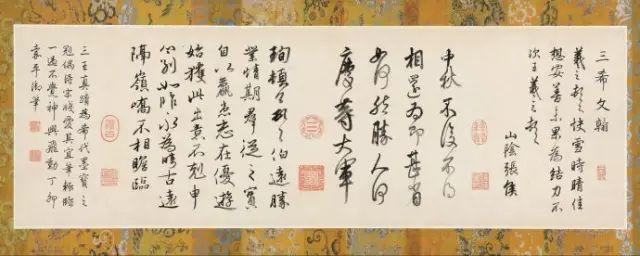 三希文翰
羲之頓首快雪時晴佳
想安善未果為結力不
次王羲之頓首
山陰張侯
中秋不復不得
相還為即甚省
如何然勝人何
慶等大軍
珣頓首頓首伯遠勝
業情期群從之寶
自以羸患志在優遊
始獲此出意不剋申
分別如昨永為疇古遠
隔嶺嶠不相瞻臨
三王真蹟為希代墨寶之
冠偶得宋牋愛其宜筆輒臨
一過不覺神興飛動丁卯
御筆